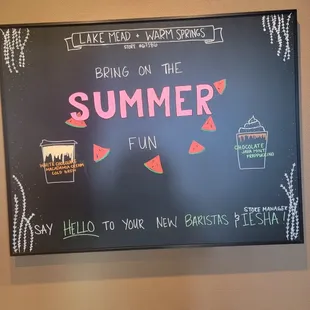 LAKE MEAD + WARM SPRINGS
BRING ON THE
SUMMER
FUN
WHITE CHOCOLATE
MACADAMIA CREAM
COLD BREW
CHOCOLATE
JAVA MINT
FRAPPUCCINO
STORE MANAGER
SAY HELLO TO YOUR NEW BARISTAS & IESHA!